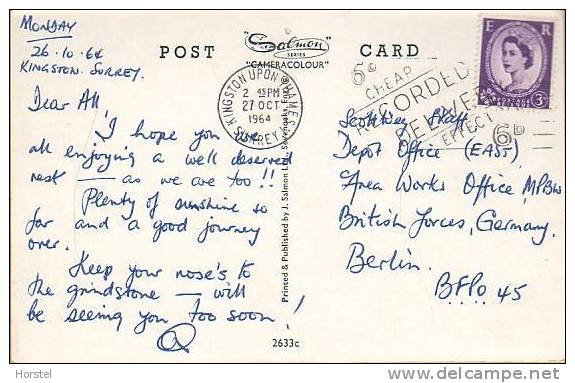 MONDAY
26.10.64
KINGSTON. SURREY.
POST CARD
"Salmon
SERIES
"CAMERACOLOUR"
KINGSTON UPON THAMES
2 45 PM
27 OCT
1964
SURREY
6D CHEAP
RECORDED
DELIVERY
EFFECT
6D
E R
3D
Dear All,
I hope you are
all enjoying a well deserved
rest — as we are too!!
Plenty of sunshine so
far and a good journey
over.
Keep your nose's to
the grindstone — will
be seeing you too soon!
Printed & Published by J. Salmon Ltd., Sevenoaks, Eng. ©
2633c
Staff
Depot Office (EAST)
Area Works Office, MPBW
British Forces, Germany.
Berlin.
BFPO 45
Horstel
www.delcampe.net